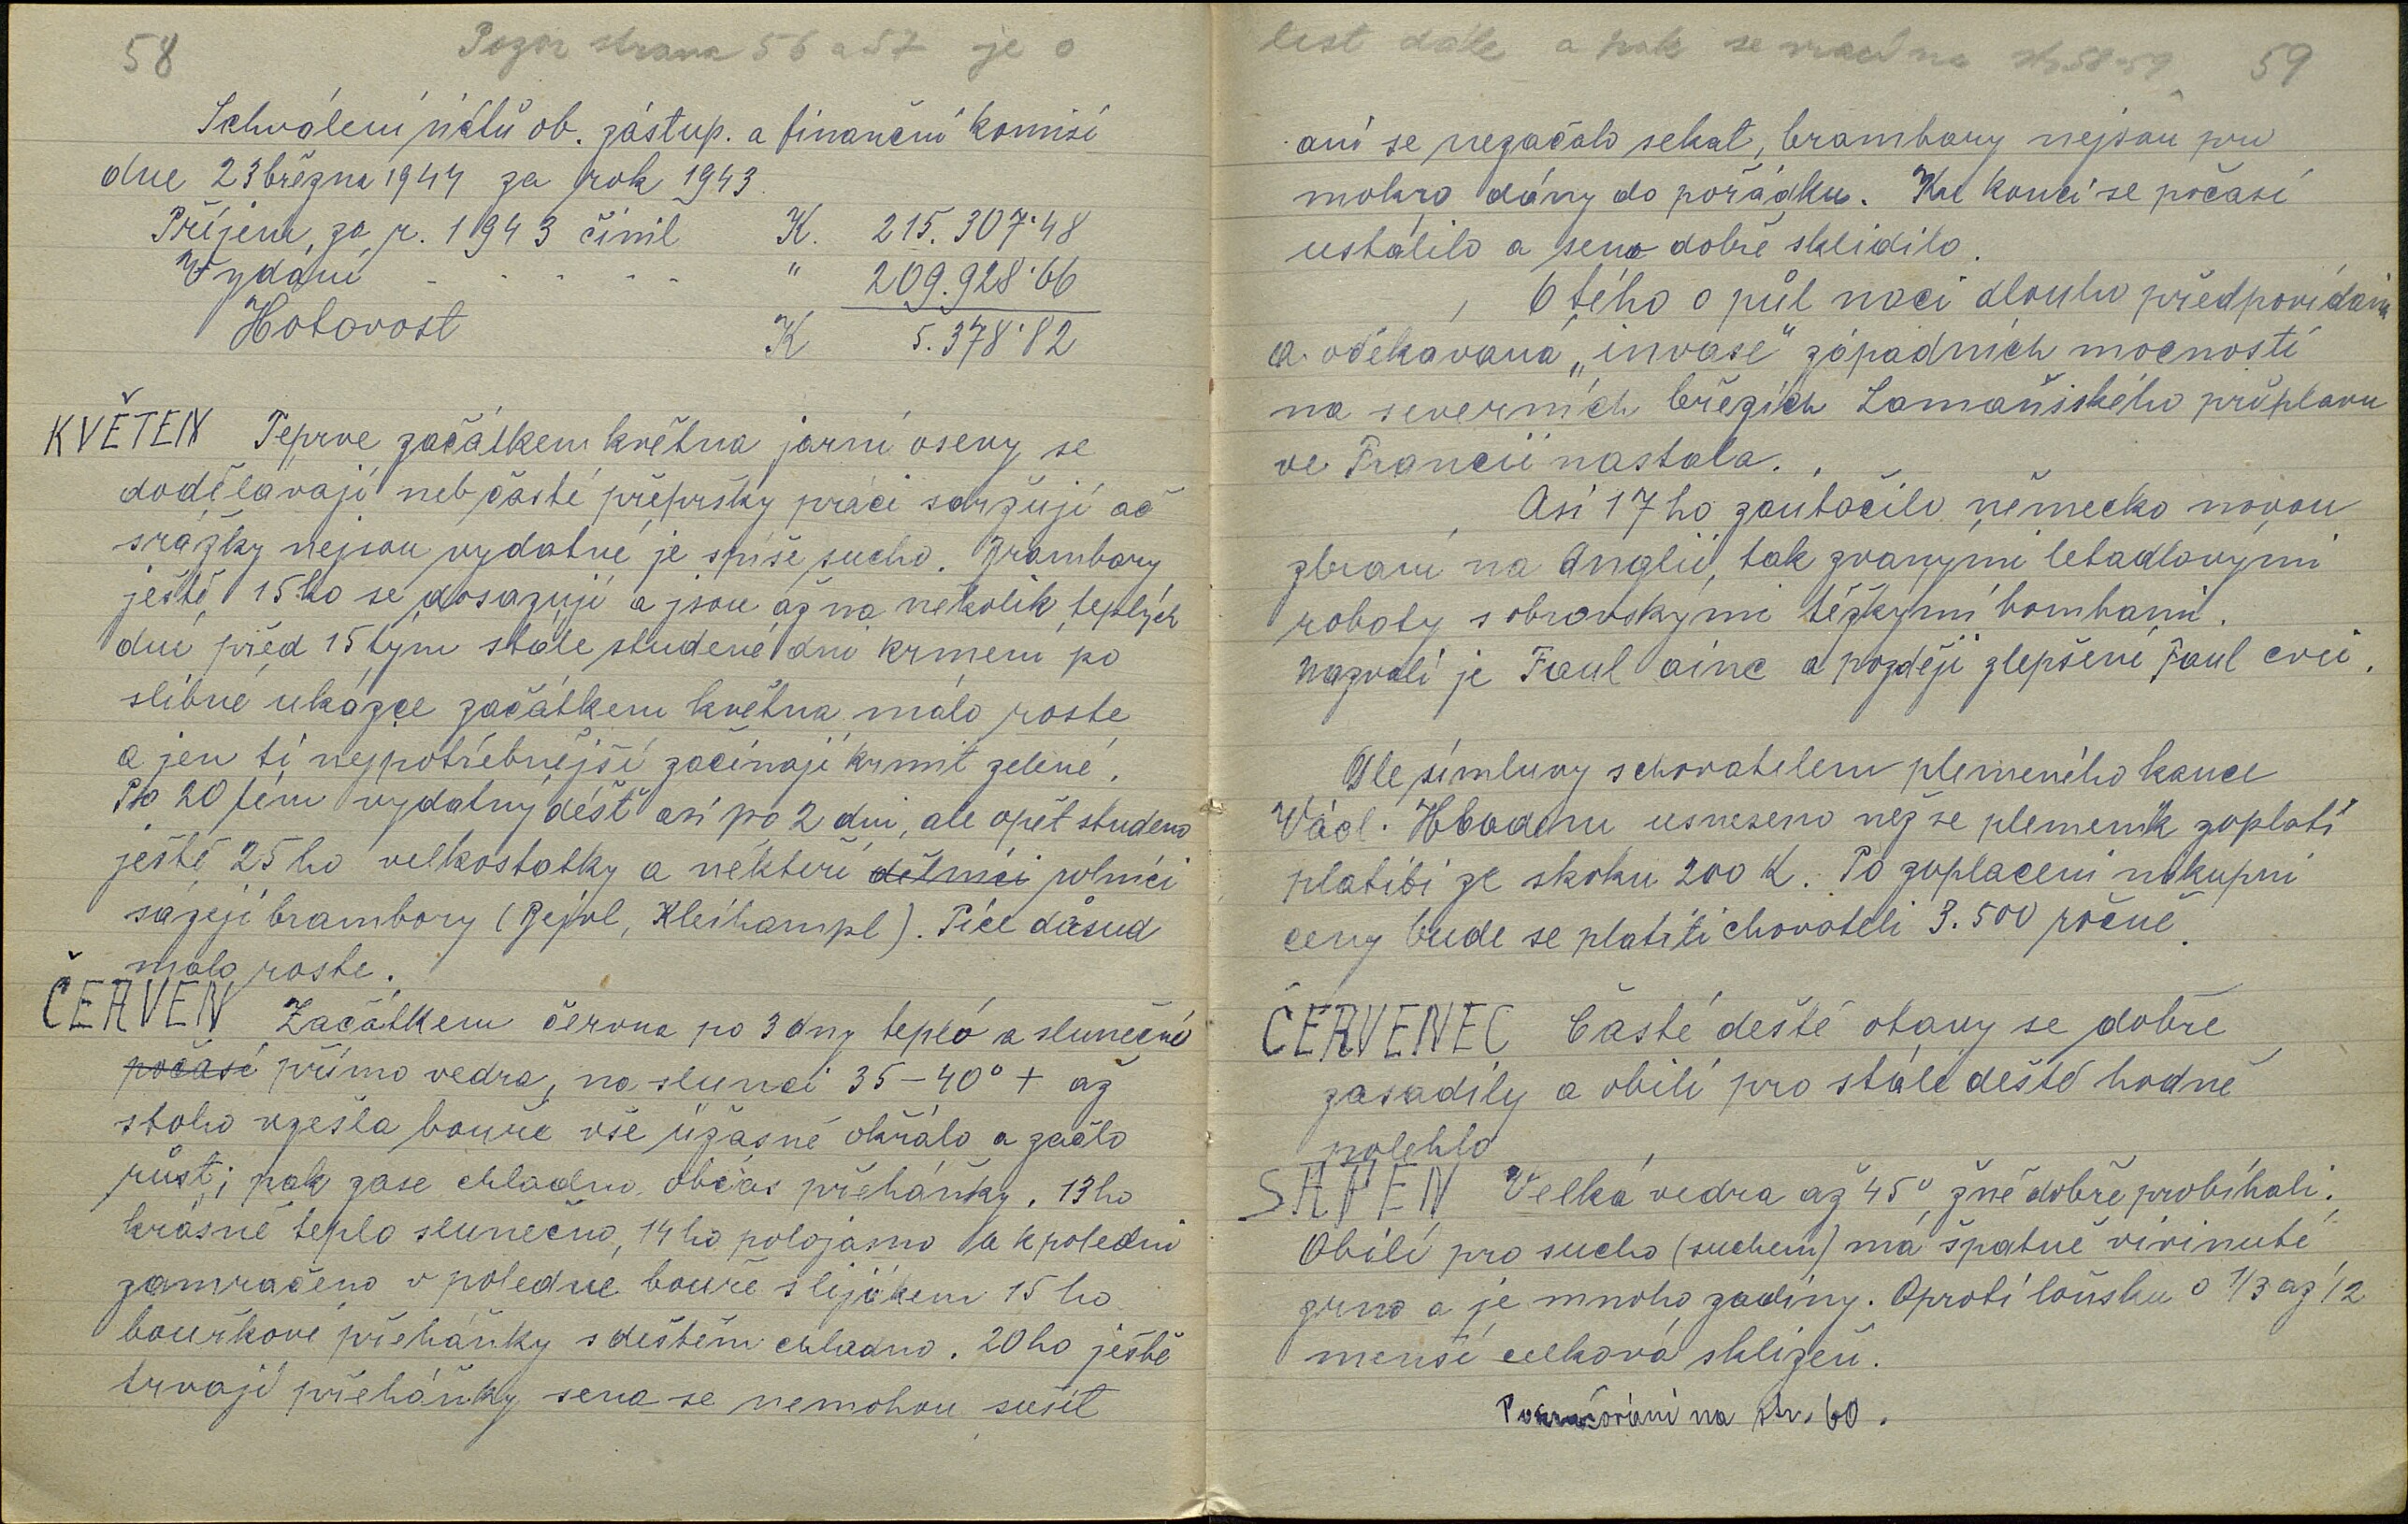 58 Pozor strana 56 a 57 je o
Schválení účtů ob. zástup. a finanční komisí
dne 23 března 1944 za rok 1943.
Příjem, za r. 1943 činil K. 215.307·48
Vydání - - - - - " 209.928·66
Hotovost K 5.378·82
KVĚTEN Teprve začátkem května jarní osevy se
dodělávají neb časté přepršky práci zdržují ač
srážky nejsou vydatné je spíše sucho. Brambory
ještě 15ho se dosazují a jsou až na několik teplých
dnů před 15tým stále studené dni krmení po
slibné ukázce začátkem května málo roste
a jen ti nejpotřebnější začínají krmit zelené.
Po 20tém vydatný déšť asi po 2 dni, ale opět studeno
ještě 25ho velkostatky a někteří dělníci rolníci
sázejí brambory (Rejul, Kleihampl). Píce dosud
málo roste.
ČERVEN Začátkem června po 3 dny teplo a slunečné
počasí přímo vedra, na slunci 35-40° + až
stoho vzešla bouře vše úžasné okřálo a začlo
růst; pak zase chladno občas přeháňky. 13ho
krásné teplo slunečno, 14ho polojasno a k poledni
zamračeno v poledne bouře s lijákem 15ho
bouřkové přeháňky s deštěm chladno. 20ho ještě
trvají přeháňky sena se nemohou sušit
list dále a pak se vrací na str 58-59 59
ani se nezačalo sekat, brambory nejsou pro
mokro dány do pořádku. Ke konci se počasí
ustálilo a seno dobře sklidilo.
6tého o půl noci dlouho předpovídaná
a očekavaná „invase" západních mocností
na severních březích Lamanšského průplavu
ve Francii nastala.
Asi 17ho zaútočilo německo novou
zbraní na Anglii, tak zvanými letadlovými
roboty s obrovskými těžkými bombami.
Nazvali je Faul ainc a později zlepšení Faul cvei.
Dle símluvy s chovatelem plemeného kance
Václ. Hbodem usneseno než se plemeník zaplatí
platibi ze skoku 200 K. Po zaplacení nákupní
ceny bude se platiti chovateli 3.500 ročně.
ČERVENEC Časté deště otavy se dobře
zasadily a obilí pro stálé deště hodně
polehlo
SRPEN Velká vedra až 45°, žně dobře probíhali.
Obilí pro sucho (suchem) má špatně vivinuté
zrno a je mnoho zadiny. Oproti loňsku o 1/3 až 1/2
menší celková sklizeň.
Pokračování na str. 60.